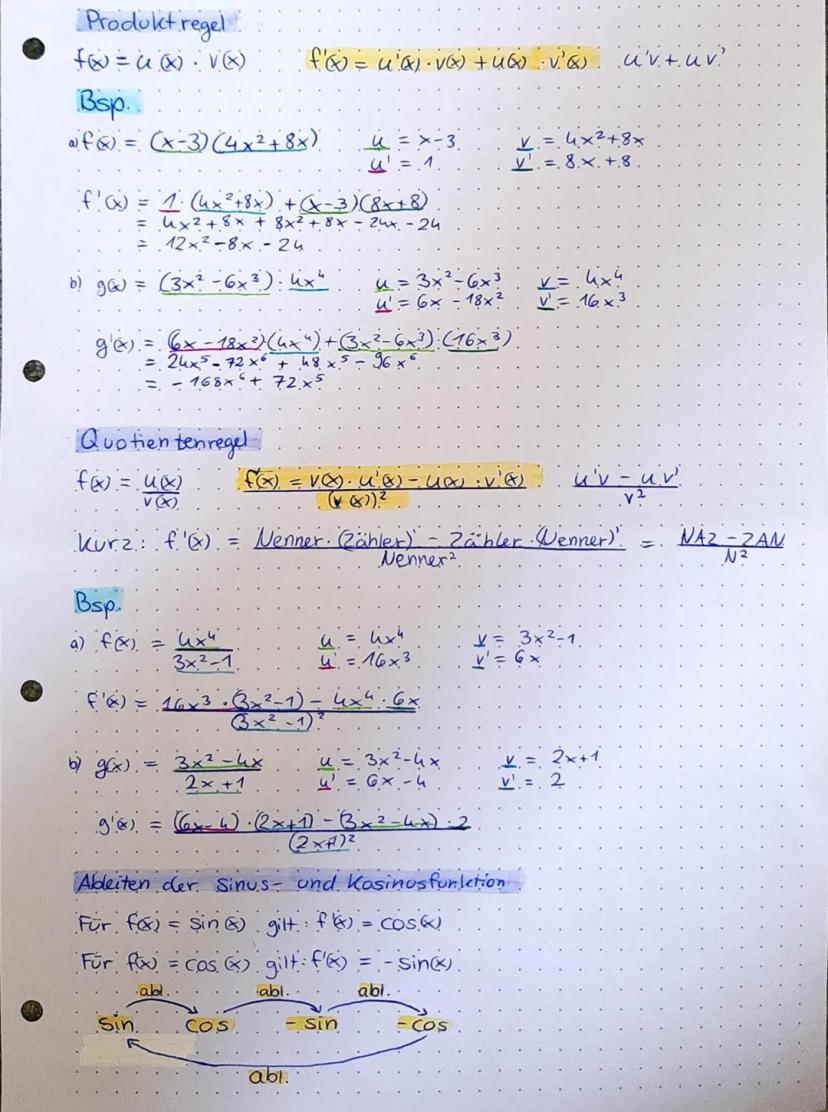 Produktregel
f(x) = u(x) · v(x) f'(x) = u'(x) · v(x) + u(x) · v'(x) u'v + uv'
Bsp.
a) f(x) = (x-3)(4x²+8x) u = x-3 v = 4x²+8x
u' = 1 v' = 8x+8
f'(x) = 1·(4x²+8x) + (x-3)(8x+8)
= 4x² + 8x + 8x² + 8x - 24x - 24
= 12x² - 8x - 24
b) g(x) = (3x² - 6x³)·4x⁴ u = 3x² - 6x³ v = 4x⁴
u' = 6x - 18x² v' = 16x³
g'(x) = (6x - 18x²)(4x⁴) + (3x² - 6x³)·(16x³)
= 24x⁵ - 72x⁶ + 48x⁵ - 96x⁶
= - 168x⁶ + 72x⁵
Quotientenregel
f(x) = u(x)/v(x) f'(x) = v(x) · u'(x) - u(x) · v'(x)/(v(x))² u'v - uv'/v²
Kurz: f'(x) = Nenner · (Zähler)' - Zähler · (Nenner)'/Nenner² = NAZ - ZAN/N²
Bsp.
a) f(x) = 4x⁴/3x²-1 u = 4x⁴ v = 3x²-1
u' = 16x³ v' = 6x
f'(x) = 16x³ · (3x²-1) - 4x⁴ · 6x/(3x²-1)²
b) g(x) = 3x² - 4x/2x+1 u = 3x² - 4x v = 2x+1
u' = 6x - 4 v' = 2
g'(x) = (6x-4) · (2x+1) - (3x² - 4x) · 2/(2x+1)²
Ableiten der Sinus- und Kosinusfunktion
Für f(x) = sin(x) gilt: f'(x) = cos(x)
Für f(x) = cos(x) gilt: f'(x) = -sin(x)
abl. abl. abl.
sin cos -sin -cos
abl.